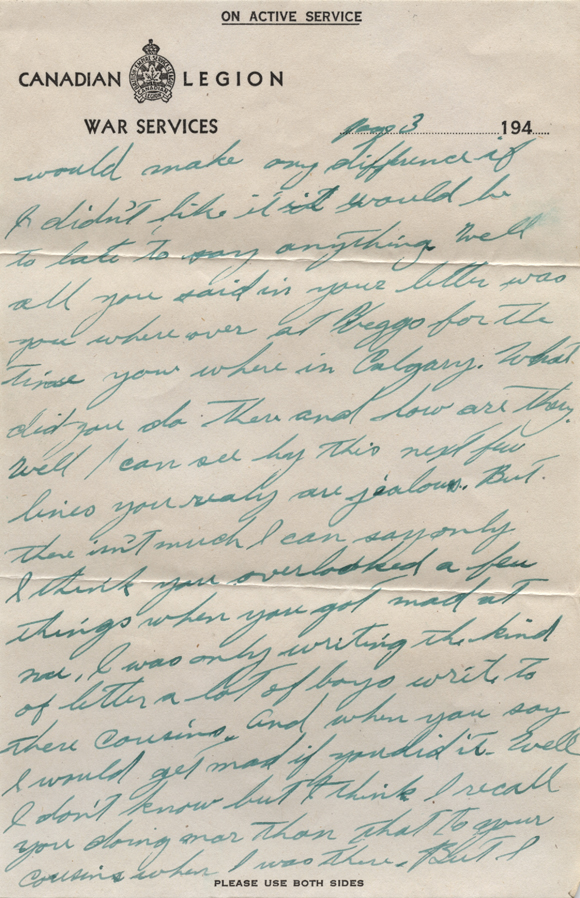 ON ACTIVE SERVICE
CANADIAN LEGION
WAR SERVICES
page 3 194
would make any difference if
I didn't like it it would be
to late to say anything. Well
all you said in your letter was
you where over at Beggs for the
time your where in Calgary. What
did you do there and how are they.
Well I can see by this next few
lines you realy are jealous. But
there isn't much I can say only
I think you overlooked a few
things when you got mad at
me, I was only writing the kind
of letter a lot of boys write to
there cousins. And when you say
I would get mad if you did it. Well
I don't know but I think I recall
you doing mor than that to your
cousins when I was there. But I
PLEASE USE BOTH SIDES